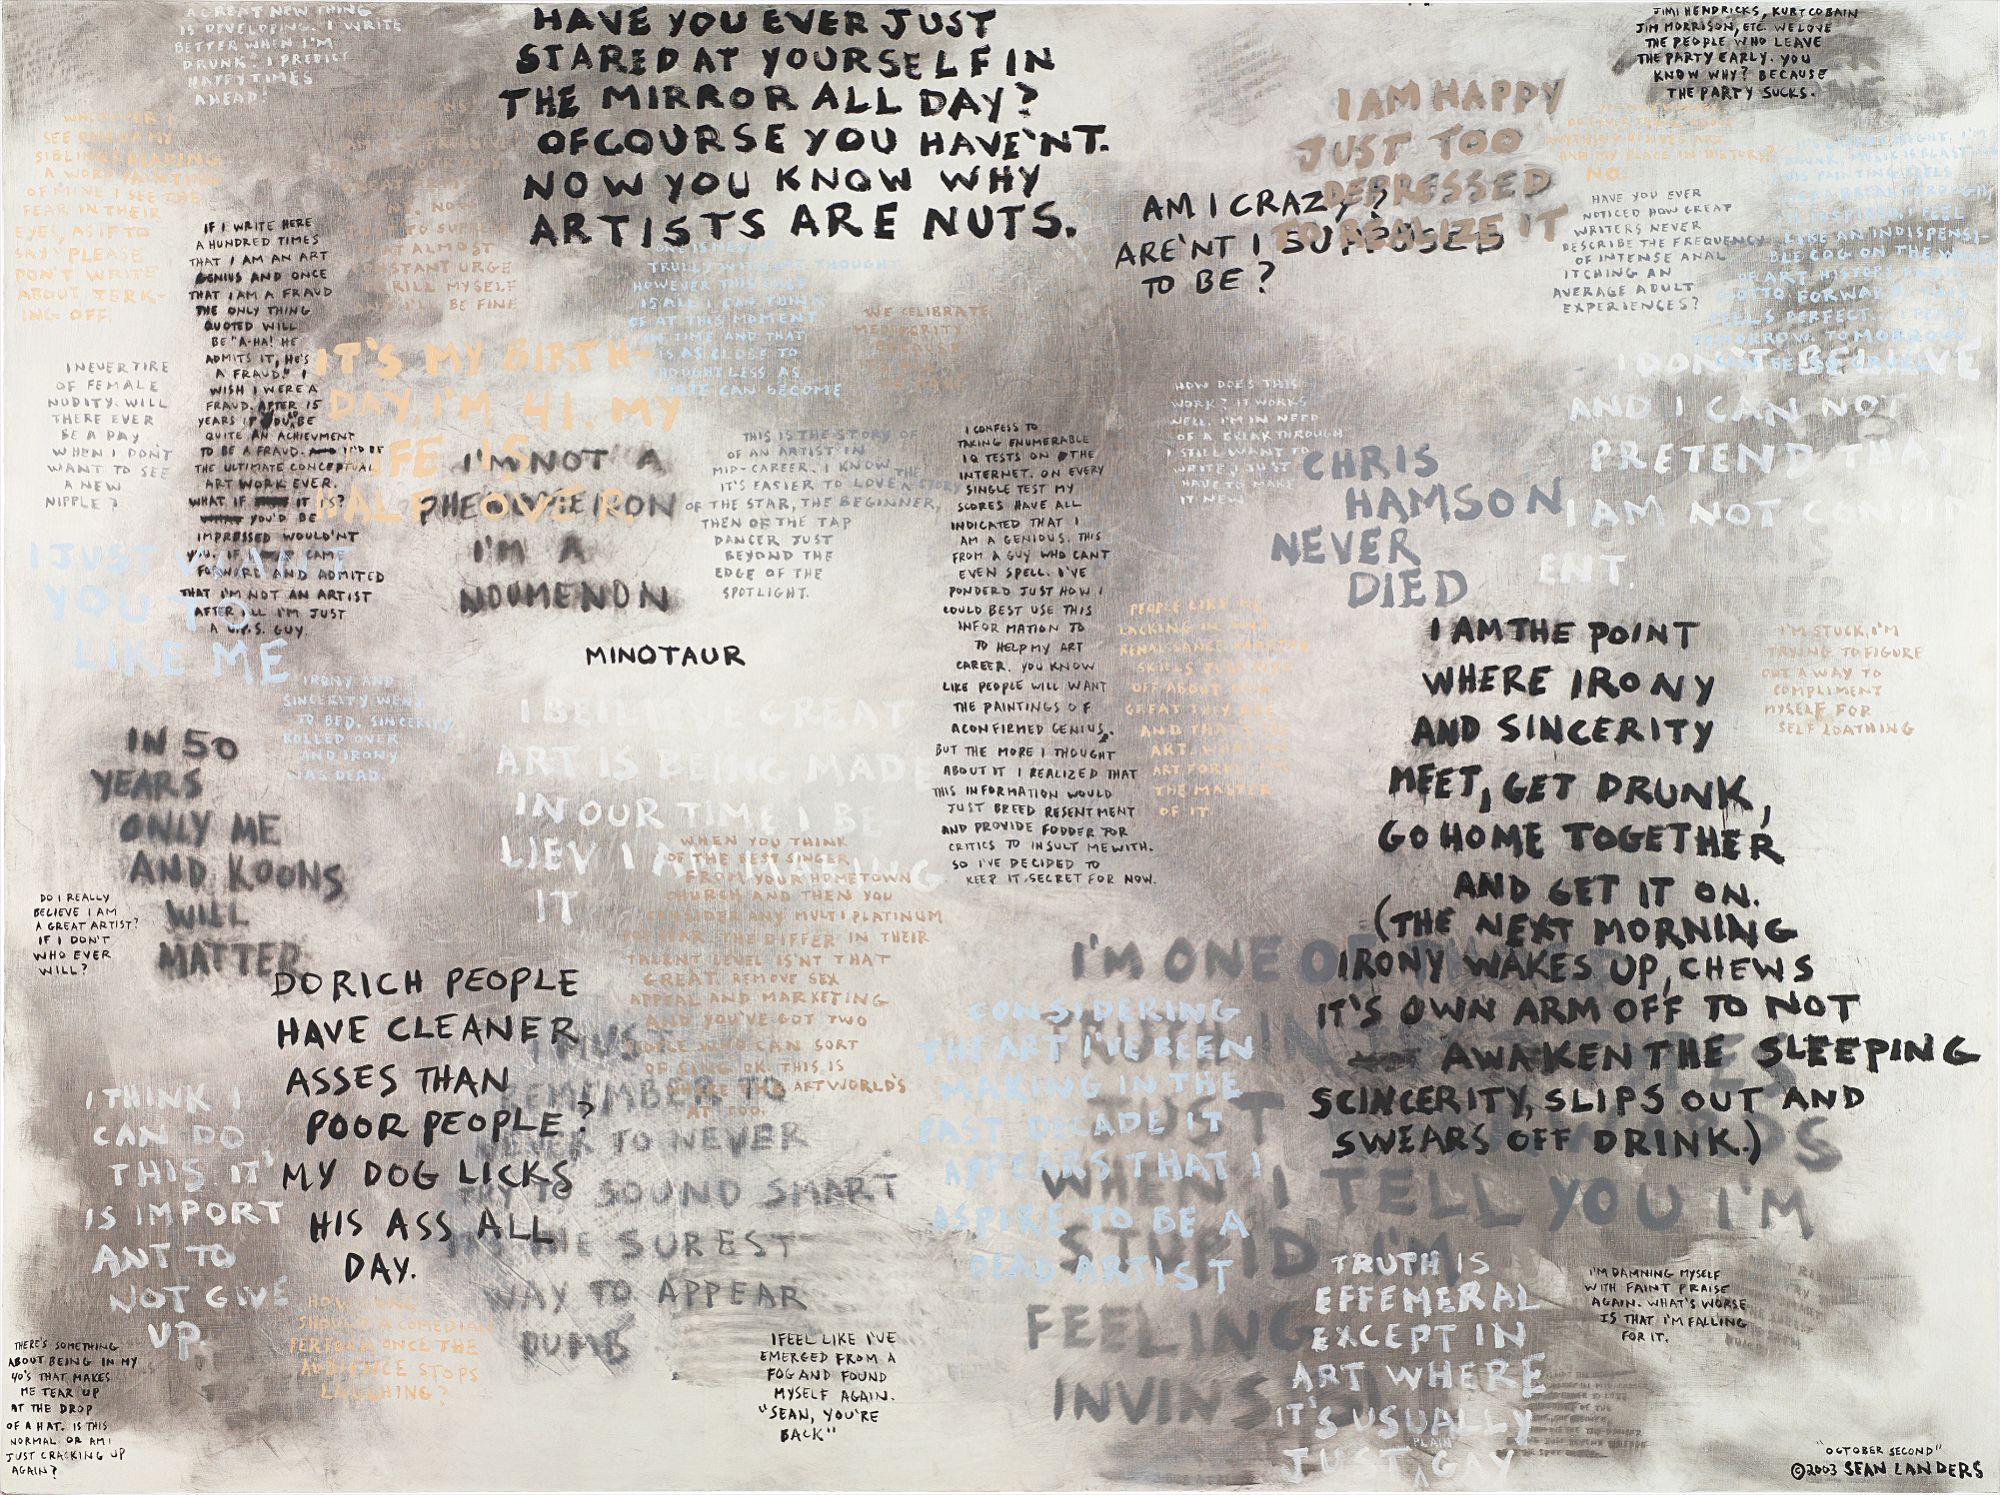 A GREAT NEW THING
IS DEVELOPING. I WRITE
BETTER WHEN I'M
DRUNK. I PREDICT
HAPPY TIMES
AHEAD!
HAVE YOU EVER JUST
STARED AT YOURSELF IN
THE MIRROR ALL DAY?
OFCOURSE YOU HAVE'NT.
NOW YOU KNOW WHY
ARTISTS ARE NUTS.
JIMI HENDRICKS, KURT COBAIN
JIM MORRISON, ETC. WE LOVE
THE PEOPLE WHO LEAVE
THE PARTY EARLY. YOU
KNOW WHY? BECAUSE
THE PARTY SUCKS.
I AM HAPPY
JUST TOO
DEPRESSED
TO REALIZE IT
AM I CRAZY?
ARE'NT I SUPPOSED
TO BE?
WHENEVER I
SEE ONE OF MY
SIBLINGS READING
A WORD PAINTING
OF MINE I SEE THE
FEAR IN THEIR
EYES, AS IF TO
SAY "PLEASE
DON'T WRITE
ABOUT JERK-
ING OFF.
IF I WRITE HERE
A HUNDRED TIMES
THAT I AM AN ART
GENIUS AND ONCE
THAT I AM A FRAUD
THE ONLY THING
QUOTED WILL
BE "A-HA! HE
ADMITS IT, HE'S
A FRAUD." I
WISH I WERE A
FRAUD. AFTER 15
YEARS IT'DU BE
QUITE AN ACHIEVMENT
TO BE A FRAUD. IT'D BE
THE ULTIMATE CONCEPTUAL
ART WORK EVER.
WHAT IF IT IS?
YOU'D BE
IMPRESSED WOULD'NT
YOU. IF I CAME
FORWORD AND ADMITED
THAT I'M NOT AN ARTIST
AFTER ALL I'M JUST
A U.P.S. GUY.
ALMOST
CONSTANT URGE
KILL MYSELF
BE FINE
ONE IS NEVER
TRULLY WITHOUT THOUGHT
HOWEVER THIS LAST
IS ALL I CAN THINK
OF AT THIS MOMENT
IN TIME AND THAT
IS AS CLOSE TO
THOUGHTLESS AS
I CAN BECOME
WE CELIBRATE
MEDIOCRITY
HAVE YOU EVER
NOTICED HOW GREAT
WRITERS NEVER
DESCRIBE THE FREQUENCY
OF INTENSE ANAL
ITCHING AN
AVERAGE ADULT
EXPERIENCES?
AND MY PLACE IN HISTORY?
NO.
I FEEL
LIKE AN INDISPENSI-
BLE COG ON THE WHEEL
OF ART HISTORY
IT'S MY BIRTH-
DAY, I'M 41. MY
LIFE IS
HALF OVER.
I NEVER TIRE
OF FEMALE
NUDITY. WILL
THERE EVER
BE A DAY
WHEN I DON'T
WANT TO SEE
A NEW
NIPPLE?
I'M NOT A
PHEOMEIRON
I'M A
NOUMENON
MINOTAUR
THIS IS THE STORY OF
OF AN ARTIST IN
MID-CAREER. I KNOW
IT'S EASIER TO LOVE THE STORY
OF THE STAR, THE BEGINNER,
THEN OF THE TAP
DANCER JUST
BEYOND THE
EDGE OF THE
SPOTLIGHT.
I CONFESS TO
TAKING ENUMERABLE
IQ TESTS ON THE
INTERNET. ON EVERY
SINGLE TEST MY
SCORES HAVE ALL
INDICATED THAT I
AM A GENIOUS. THIS
FROM A GUY WHO CANT
EVEN SPELL. I'VE
PONDERD JUST HOW I
COULD BEST USE THIS
INFORMATION TO
TO HELP MY ART
CAREER. YOU KNOW
LIKE PEOPLE WILL WANT
THE PAINTINGS OF
A CONFIRMED GENIUS.
BUT THE MORE I THOUGHT
ABOUT IT I REALIZED THAT
THIS INFORMATION WOULD
JUST BREED RESENTMENT
AND PROVIDE FODDER TOR
CRITICS TO INSULT ME WITH.
SO I'VE DECIDED TO
KEEP IT SECRET FOR NOW.
HOW DOES THIS
WORK? IT WORKS
WELL. I'M IN NEED
OF A BREAKTHROUGH
I STILL WANT TO
WRITE I JUST
HAVE TO MAKE
IT NEW
CHRIS
HAMSON
NEVER
DIED
I DON'T BELIEVE
AND I CAN NOT
PRETEND THAT
I AM NOT CONTIN
ENT.
I JUST WANT
YOU TO
LIKE ME
IRONY AND
SINCERITY WENT
TO BED. SINCERITY
ROLLED OVER
AND IRONY
WAS DEAD.
I BELIEVE GREAT
ART IS BEING MADE
IN OUR TIME I BE
LIEV I AM MAKING
IT
PEOPLE LIKE ME
LACKING IN ANY
RENAISSANCE MASTER
SKILLS JUST RIFF
OFF ABOUT HOW
GREAT THEY ARE
AND THAT'S THE
ART.
THE MASTER
OF IT
I AM THE POINT
WHERE IRONY
AND SINCERITY
MEET, GET DRUNK,
GO HOME TOGETHER
AND GET IT ON.
(THE NEXT MORNING
IRONY WAKES UP, CHEWS
IT'S OWN ARM OFF TO NOT
AWAKEN THE SLEEPING
SCINCERITY, SLIPS OUT AND
SWEARS OFF DRINK.)
I'M STUCK, I'M
TRYING TO FIGURE
OUT A WAY TO
COMPLIMENT
MYSELF FOR
SELF LOATHING
IN 50
YEARS
ONLY ME
AND KOONS
WILL
MATTER
DO I REALLY
BELIEVE I AM
A GREAT ARTIST?
IF I DON'T
WHO EVER
WILL?
DO RICH PEOPLE
HAVE CLEANER
ASSES THAN
POOR PEOPLE?
MY DOG LICKS
HIS ASS ALL
DAY.
WHEN YOU THINK
OF THE BEST SINGER
FROM YOUR HOMETOWN
CHURCH AND THEN YOU
CONSIDER ANY MULTIPLATINUM
POP STAR. THE DIFFER IN THEIR
TALENT LEVEL IS'NT THAT
GREAT. REMOVE SEX
APPEAL AND MARKETING
AND YOU'VE GOT TWO
PEOPLE WHO CAN SORT
OF SING OK. THIS IS
WHERE THE ARTWORLD'S
AT TOO.
I MUST
REMEMBER TO
NEVER TO NEVER
TRY TO SOUND SMART
IT'S THE SUREST
WAY TO APPEAR
DUMB
I'M ONE OF
WHEN I TELL YOU I'M
STUPID I'M
FEELING
CONSIDERING
THE ART I'VE BEEN
MAKING IN THE
PAST DECADE IT
APPEARS THAT I
ASPIRE TO BE A
DEAD ARTIST
I THINK I
CAN DO
THIS. IT'
IS IMPORT
ANT TO
NOT GIVE
UP.
HOW LONG
SHOULD A COMEDIAN
PERFORM ONCE THE
AUDIENCE STOPS
LAUGHING?
TRUTH IS
EFFEMERAL
EXCEPT IN
ART WHERE
IT'S USUALLY
JUST PLAIN GAY
I'M DAMNING MYSELF
WITH FAINT PRAISE
AGAIN. WHAT'S WORSE
IS THAT I'M FALLING
FOR IT.
I FEEL LIKE I'VE
EMERGED FROM A
FOG AND FOUND
MYSELF AGAIN.
"SEAN, YOU'RE
BACK"
THERE'S SOMETHING
ABOUT BEING IN MY
40'S THAT MAKES
ME TEAR UP
AT THE DROP
OF A HAT. IS THIS
NORMAL OR AM I
JUST CRACKING UP
AGAIN?
"OCTOBER SECOND"
©2003 SEAN LANDERS